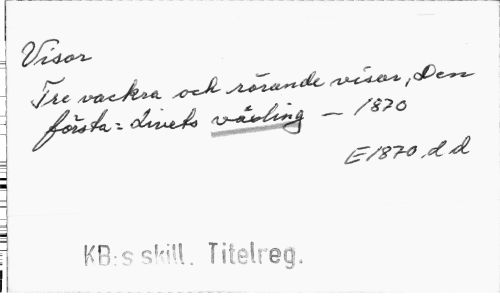 Visor
Tre vackra och rörande visor, Den
första: Livets växling – 1870
E1870, d d
KB:s skill. Titelreg.